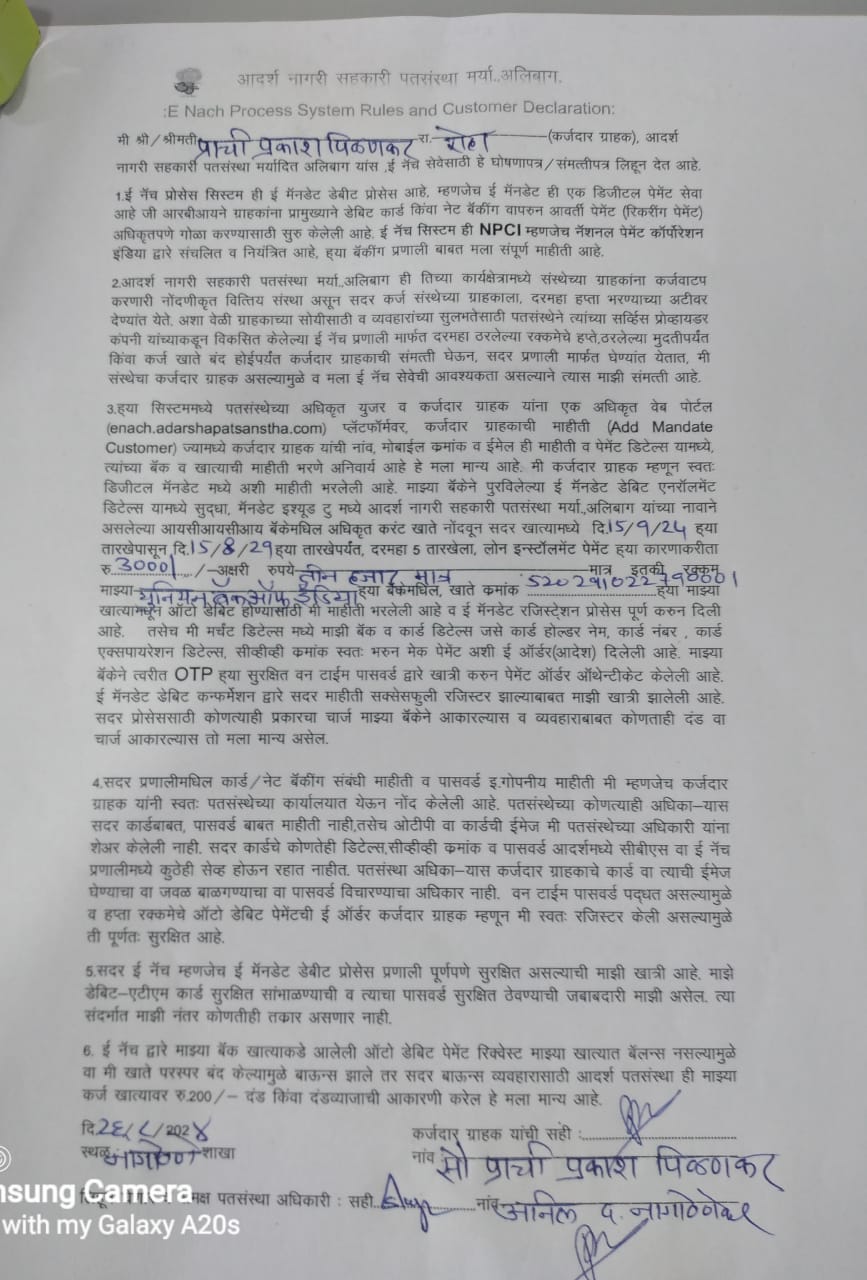 आदर्श नागरी सहकारी पतसंस्था मर्या.,अलिबाग.
:E Nach Process System Rules and Customer Declaration:
मी श्री/श्रीमती प्राची प्रकाश पिळणकर रा. रोहा (कर्जदार ग्राहक), आदर्श
नागरी सहकारी पतसंस्था मर्यादित अलिबाग यांस ,ई नॅच सेवेसाठी हे घोषणापत्र/संमत्तीपत्र लिहून देत आहे.
1.ई नॅच प्रोसेस सिस्टम ही ई मॅनडेट डेबीट प्रोसेस आहे, म्हणजेच ई मॅनडेट ही एक डिजिटल पेमेंट सेवा
आहे जी आरबीआयने ग्राहकांना प्रामुख्याने डेबिट कार्ड किंवा नेट बॅकींग वापरुन आवर्ती पेमेंट (रिकरींग पेमेंट)
अधिकृतपणे गोळा करण्यासाठी सुरु केलेली आहे. ई नॅच सिस्टम ही NPCI म्हणजेच नॅशनल पेमेंट कॉर्पोरेशन
इंडिया द्वारे संचलित व नियंत्रित आहे, ह्या बॅकींग प्रणाली बाबत मला संपूर्ण माहीती आहे.
2.आदर्श नागरी सहकारी पतसंस्था मर्या.,अलिबाग ही तिच्या कार्यक्षेत्रामध्ये संस्थेच्या ग्राहकांना कर्जवाटप
करणारी नोंदणीकृत वित्तिय संस्था असून सदर कर्ज संस्थेच्या ग्राहकाला, दरमहा हप्ता भरण्याच्या अटीवर
देण्यांत येते. अशा वेळी ग्राहकाच्या सोयीसाठी व व्यवहारांच्या सुलभतेसाठी पतसंस्थेने त्यांच्या सर्व्हिस प्रोव्हायडर
कंपनी यांच्याकडून विकसित केलेल्या ई नॅच प्रणाली मार्फत दरमहा ठरलेल्या रक्कमेचे हप्ते,ठरलेल्या मुदतीपर्यंत
किंवा कर्ज खाते बंद होईपर्यंत कर्जदार ग्राहकाची संमत्ती घेऊन, सदर प्रणाली मार्फत घेण्यांत येतात, मी
संस्थेचा कर्जदार ग्राहक असल्यामुळे व मला ई नॅच सेवेची आवश्यकता असल्याने त्यास माझी संमत्ती आहे.
3.ह्या सिस्टममध्ये पतसंस्थेच्या अधिकृत युजर व कर्जदार ग्राहक यांना एक अधिकृत वेब पोर्टल
(enach.adarshapatsanstha.com) प्लॅटफॉर्मवर, कर्जदार ग्राहकाची माहीती (Add Mandate
Customer) ज्यामध्ये कर्जदार ग्राहक यांची नांव, मोबाईल कमांक व ईमेल ही माहीती व पेमेंट डिटेल्स यामध्ये,
त्यांच्या बॅक व खात्याची माहीती भरणे अनिवार्य आहे हे मला मान्य आहे. मी कर्जदार ग्राहक म्हणून स्वतः
डिजीटल मॅनडेट मध्ये अशी माहीती भरलेली आहे. माझ्या बॅकेने पुरविलेल्या ई मॅनडेट डेबिट एनरॉलमेंट
डिटेल्स यामध्ये सुद्धा, मॅनडेट इश्यूड टु मध्ये आदर्श नागरी सहकारी पतसंस्था मर्या.,अलिबाग यांच्या नावाने
असलेल्या आयसीआयसीआय बॅकेमधिल अधिकृत करंट खाते नोंदवून सदर खात्यामध्ये दि.15/9/24 ह्या
तारखेपासून दि.15/8/29 ह्या तारखेपर्यंत, दरमहा 5 तारखेला, लोन इन्स्टॉलमेंट पेमेंट ह्या कारणाकरीता
रु 3000/ /–अक्षरी रुपये तीन हजार मात्र मात्र इतकी रक्कम
माझ्या युनियन बँक ऑफ इंडिया ह्या बॅकेमधिल, खाते कमांक 520291022790001 ह्या माझ्या
खात्यामधून ऑटो डेबिट होण्यासाठी मी माहीती भरलेली आहे व ई मॅनडेट रजिस्ट्रेशन प्रोसेस पूर्ण करुन दिली
आहे. तसेच मी मर्चंट डिटेल्स मध्ये माझी बॅक व कार्ड डिटेल्स जसे कार्ड होल्डर नेम, कार्ड नंबर , कार्ड
एक्सपायरेशन डिटेल्स, सीव्हीव्ही कमांक स्वतः भरुन मेक पेमेंट अशी ई ऑर्डर(आदेश) दिलेली आहे. माझ्या
बॅकेने त्वरीत OTP ह्या सुरक्षित वन टाईम पासवर्ड द्वारे खात्री करुन पेमेंट ऑर्डर ऑथेन्टीकेट केलेली आहे.
ई मॅनडेट डेबिट कन्फर्मेशन द्वारे सदर माहीती सक्सेसफुली रजिस्टर झाल्याबाबत माझी खात्री झालेली आहे.
सदर प्रोसेससाठी कोणत्याही प्रकारचा चार्ज माझ्या बॅकेने आकारल्यास व व्यवहाराबाबत कोणताही दंड वा
चार्ज आकारल्यास तो मला मान्य असेल.
4.सदर प्रणालीमधिल कार्ड/नेट बॅकींग संबंधी माहीती व पासवर्ड इ.गोपनीय माहीती मी म्हणजेच कर्जदार
ग्राहक यांनी स्वतः पतसंस्थेच्या कार्यालयात येऊन नोंद केलेली आहे. पतसंस्थेच्या कोणत्याही अधिका–यास
सदर कार्डबाबत, पासवर्ड बाबत माहीती नाही,तसेच ओटीपी वा कार्डची ईमेज मी पतसंस्थेच्या अधिकारी यांना
शेअर केलेली नाही. सदर कार्डचे कोणतेही डिटेल्स,सीव्हीव्ही कमांक व पासवर्ड आदर्शमध्ये सीबीएस वा ई नॅच
प्रणालीमध्ये कुठेही सेव्ह होऊन रहात नाहीत. पतसंस्था अधिका–यास कर्जदार ग्राहकाचे कार्ड वा त्याची ईमेज
घेण्याचा वा जवळ बाळगण्याचा वा पासवर्ड विचारण्याचा अधिकार नाही. वन टाईम पासवर्ड पद्धत असल्यामुळे
व हप्ता रक्कमेचे ऑटो डेबिट पेमेंटची ई ऑर्डर कर्जदार ग्राहक म्हणून मी स्वतः रजिस्टर केली असल्यामुळे
ती पूर्णतः सुरक्षित आहे.
5.सदर ई नॅच म्हणजेच ई मॅनडेट डेबीट प्रोसेस प्रणाली पूर्णपणे सुरक्षित असल्याची माझी खात्री आहे. माझे
डेबिट–एटीएम कार्ड सुरक्षित सांभाळण्याची व त्याचा पासवर्ड सुरक्षित ठेवण्याची जबाबदारी माझी असेल. त्या
संदर्भात माझी नंतर कोणतीही तकार असणार नाही.
6. ई नॅच द्वारे माझ्या बॅक खात्याकडे आलेली ऑटो डेबिट पेमेंट रिक्वेस्ट माझ्या खात्यात बॅलन्स नसल्यामुळे
वा मी खाते परस्पर बंद केल्यामुळे बाऊन्स झाले तर सदर बाऊन्स व्यवहारासाठी आदर्श पतसंस्था ही माझ्या
कर्ज खात्यावर रु.200/– दंड किंवा दंडव्याजाची आकारणी करेल हे मला मान्य आहे.
दि.26/8/2024 कर्जदार ग्राहक यांची सही :
स्थळ: नागोठणे शाखा नांव सौ प्राची प्रकाश पिळणकर
पतसंस्था अधिकारी : सही नांव अनिल द. नागोठणेकर
nsung Camera
with my Galaxy A20s